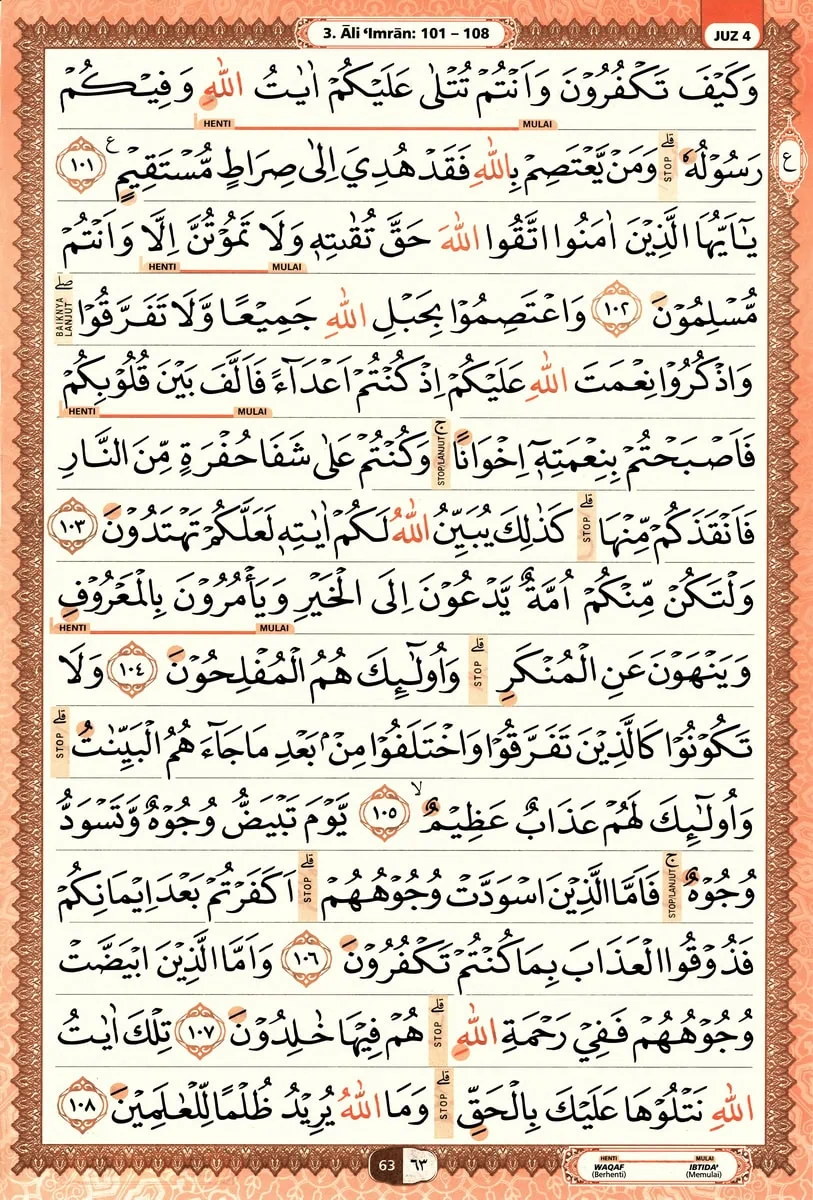 3. Āli ‘Imrān: 101 – 108
JUZ 4
وَكَيْفَ تَكْفُرُوْنَ وَاَنْتُمْ تُتْلٰى عَلَيْكُمْ اٰيٰتُ اللّٰهِ وَفِيْكُمْ
HENTI MULAI
رَسُوْلُهٗ ۗ STOP وَمَنْ يَّعْتَصِمْ بِاللّٰهِ فَقَدْ هُدِيَ اِلٰى صِرَاطٍ مُّسْتَقِيْمٍ ࣖ ١٠١
ع
يٰٓاَيُّهَا الَّذِيْنَ اٰمَنُوا اتَّقُوا اللّٰهَ حَقَّ تُقٰىتِهٖ وَلَا تَمُوْتُنَّ اِلَّا وَاَنْتُمْ
HENTI MULAI
مُّسْلِمُوْنَ ١٠٢ وَاعْتَصِمُوْا بِحَبْلِ اللّٰهِ جَمِيْعًا وَّلَا تَفَرَّقُوْا ۖ BAIKNYA LANJUT
وَاذْكُرُوْا نِعْمَتَ اللّٰهِ عَلَيْكُمْ اِذْ كُنْتُمْ اَعْدَاۤءً فَاَلَّفَ بَيْنَ قُلُوْبِكُمْ
HENTI MULAI
فَاَصْبَحْتُمْ بِنِعْمَتِهٖٓ اِخْوَانًا ۚ STOP/LANJUT وَكُنْتُمْ عَلٰى شَفَا حُفْرَةٍ مِّنَ النَّارِ
فَاَنْقَذَكُمْ مِّنْهَا ۗ STOP كَذٰلِكَ يُبَيِّنُ اللّٰهُ لَكُمْ اٰيٰتِهٖ لَعَلَّكُمْ تَهْتَدُوْنَ ١٠٣
وَلْتَكُنْ مِّنْكُمْ اُمَّةٌ يَّدْعُوْنَ اِلَى الْخَيْرِ وَيَأْمُرُوْنَ بِالْمَعْرُوْفِ
HENTI MULAI
وَيَنْهَوْنَ عَنِ الْمُنْكَرِ ۗ STOP وَاُولٰۤىِٕكَ هُمُ الْمُفْلِحُوْنَ ١٠٤ وَلَا
تَكُوْنُوْا كَالَّذِيْنَ تَفَرَّقُوْا وَاخْتَلَفُوْا مِنْۢ بَعْدِ مَا جَاۤءَهُمُ الْبَيِّنٰتُ ۗ STOP
وَاُولٰۤىِٕكَ لَهُمْ عَذَابٌ عَظِيْمٌ ۙ ١٠٥ يَّوْمَ تَبْيَضُّ وُجُوْهٌ وَّتَسْوَدُّ
وُجُوْهٌ ۚ STOP/LANJUT فَاَمَّا الَّذِيْنَ اسْوَدَّتْ وُجُوْهُهُمْ ۗ STOP اَكَفَرْتُمْ بَعْدَ اِيْمَانِكُمْ
فَذُوْقُوا الْعَذَابَ بِمَا كُنْتُمْ تَكْفُرُوْنَ ١٠٦ وَاَمَّا الَّذِيْنَ ابْيَضَّتْ
وُجُوْهُهُمْ فَفِيْ رَحْمَةِ اللّٰهِ ۗ STOP هُمْ فِيْهَا خٰلِدُوْنَ ١٠٧ تِلْكَ اٰيٰتُ
اللّٰهِ نَتْلُوْهَا عَلَيْكَ بِالْحَقِّ ۗ STOP وَمَا اللّٰهُ يُرِيْدُ ظُلْمًا لِّلْعٰلَمِيْنَ ١٠٨
63 ٦٣
HENTI MULAI
WAQAF IBTIDA'
(Berhenti) (Memulai)